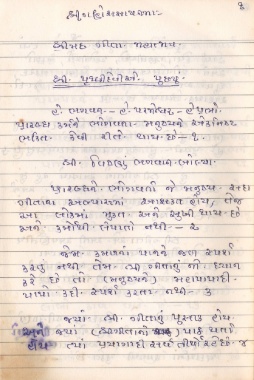 ૧
શ્રીગણેશાય નમઃ
શ્રીમદ્ ગીતા મહાત્મય
શ્રી. પૃથ્વીદેવીએ પૂછ્યું
હે. ભગવન - હે. પરમેશ્વર - હે પ્રભો.
પ્રારબ્ધ કર્મને ભોગવતા મનુષ્યને એકનિષ્ઠ
ભક્તિ કેવી રીતે થાય છે - ૧.
શ્રી. વિષ્ણુ ભગવાન બોલ્યા
પ્રારબ્ધને ભોગવતો જે મનુષ્ય સદા
ગીતાના અભ્યાસમાં આસક્ત હોય, તેજ
આ લોકમાં મુક્ત અને સુખી થાય છે
અને કર્મોથી લેપાતો નથી - ૨
જેમ કમળના પાનને જળ સ્પર્શ
કરતું નથી તેમ શ્રી ગીતાનું જો ધ્યાન
કરે છે તો (મનુષ્યને) મહાપાપાદી
પાપો કદી સ્પર્શ કરતા નથી - ૩
જ્યાં શ્રી. ગીતાનું પુસ્તક હોય
અને જ્યાં (શ્રીગીતાનો) પાઠ થતો
હોય ત્યાં પ્રયાગાદી સર્વ તીર્થો રહે છે. ૪